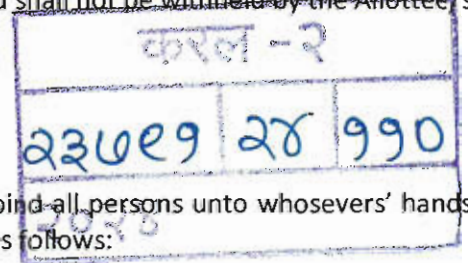 shall not be withheld by the Allottee
करल - २
२३७९१ २४ ११०
bind all persons unto whosevers' hands
२०२४
s follows: